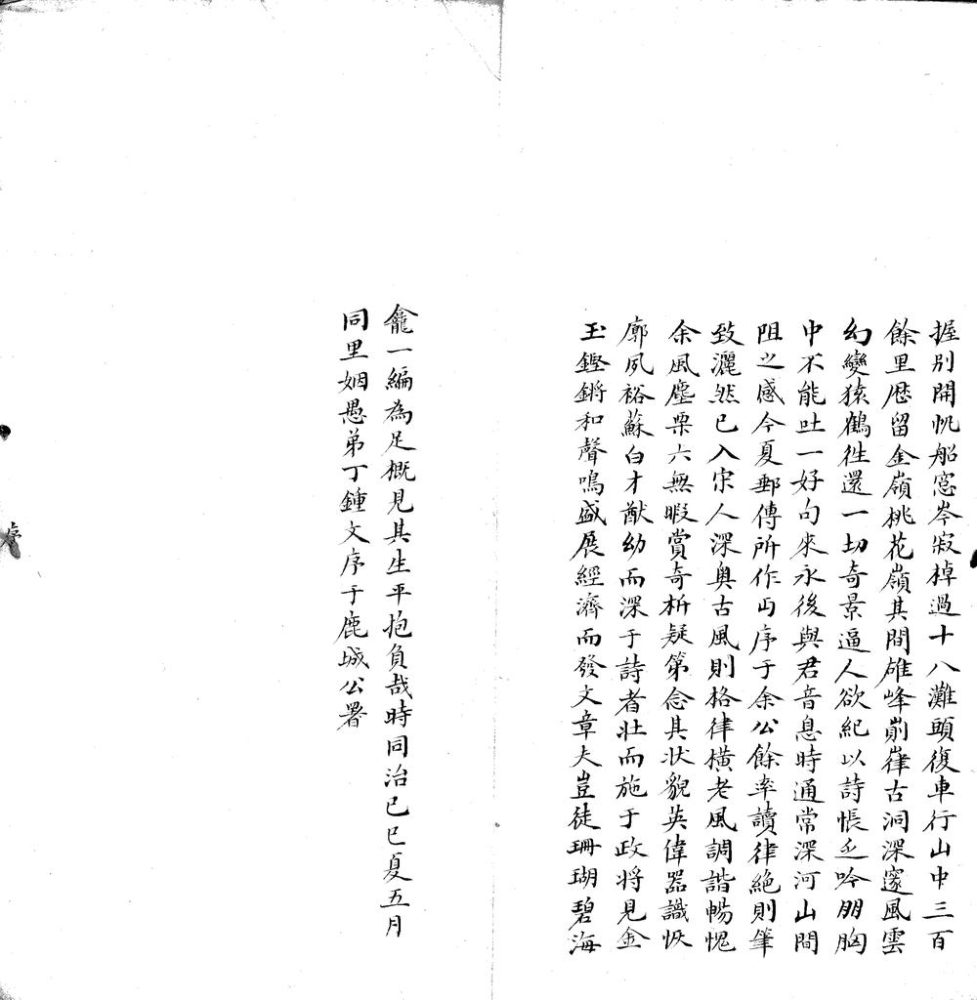 握別開帆船窓岑寂棹過十八灘頭復車行山中三百
餘里歷留金嶺桃花嶺其間雄峰崱嵂古洞深邃風雲
幻變猿鶴徃還一切奇景逼人欲紀以詩悵乏吟朋胸
中不能吐一好句來永後與君音息時通常深河山間
阻之感今夏郵傳所作丐序于余公餘率讀律絕則筆
致灑然已入宋人深奥古風則格律橫老風調諧暢愧
余風塵栗六無暇賞奇析疑第念其状貌英偉器識恢
廓夙裕蘇白才猷幼而深于詩者壯而施于政將見金
玉鏗鏘和聲鳴盛展經濟而發文章夫豈徒珊瑚碧海
龕一編為足概見其生平抱負哉時同治己巳夏五月
同里姻愚弟丁鍾文序于鹿城公署
序